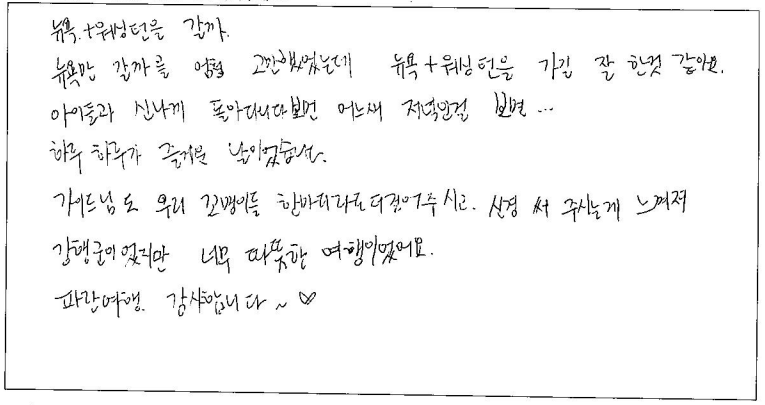 뉴욕.+워싱턴을 갈까.
뉴욕만 갈까를 엄청 고민했었는데 뉴욕+워싱턴을 가길 잘 한것 같아요.
아이들과 신나게 돌아다니다보면 어느새 저녁인걸 보면...
하루 하루가 즐거운 날이었습니다.
가이드님도 우리 꼬맹이들 한마디라도 더 걸어주시고. 신경 써 주시는게 느껴져
강행군이었지만 너무 따뜻한 여행이었어요.
파란여행. 감사합니다~♡